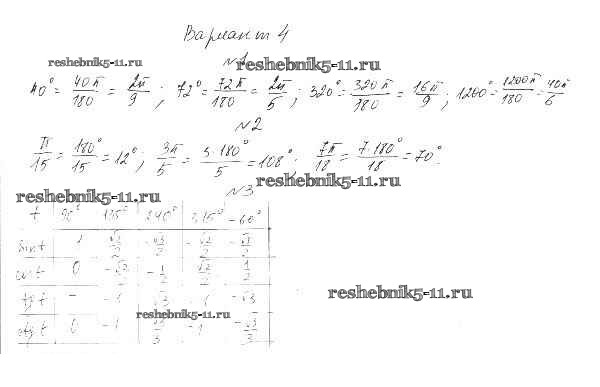 Вариант 4
reshebnik5-11.ru
№1
reshebnik5-11.ru
40° = 40π/180 = 2π/9 ; 72° = 72π/180 = 2π/5 ; 320° = 320π/180 = 16π/9 , 1200° = 1200π/180 = 40π/6
№2
π/15 = 180°/15 = 12° ; 3π/5 = 3·180°/5 = 108° ; 7π/18 = 7·180°/18 = 70°.
reshebnik5-11.ru
reshebnik5-11.ru
№3
t 90° 135° 240° -60°
sin t √2/2 -√3/2 -√2/2 -√3/2
0 -√2/2 -1/2 √2/2 1/2
tg t - -1 √3 -√3
reshebnik5-11.ru
reshebnik5-11.ru
ctg t 0 -1 √3/3 -1 -√3/3